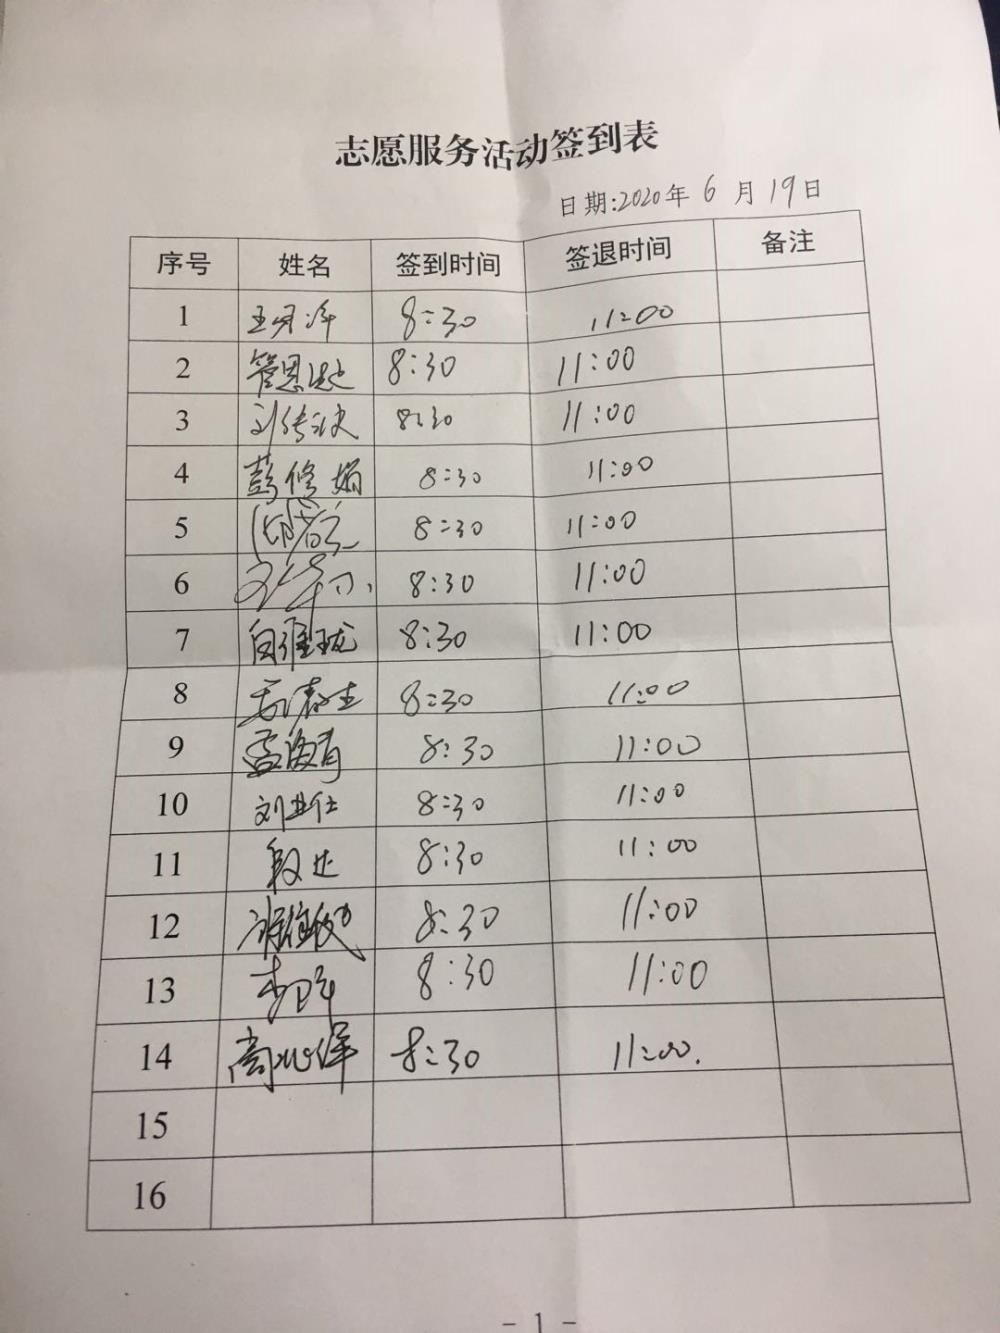 志愿服务活动签到表
日期:2020年 6 月 19日
序号 姓名 签到时间 签退时间 备注
1 8:30 11:00
2 8:30 11:00
3 8:30 11:00
4 彭修娟 8:30 11:00
5 8:30 11:00
6 8:30 11:00
7 白维珑 8:30 11:00
8 8:30 11:00
9 8:30 11:00
10 刘世仕 8:30 11:00
11 段正 8:30 11:00
12 8:30 11:00
13 8:30 11:00
14 8:30 11:00.
15
16
- 1 -